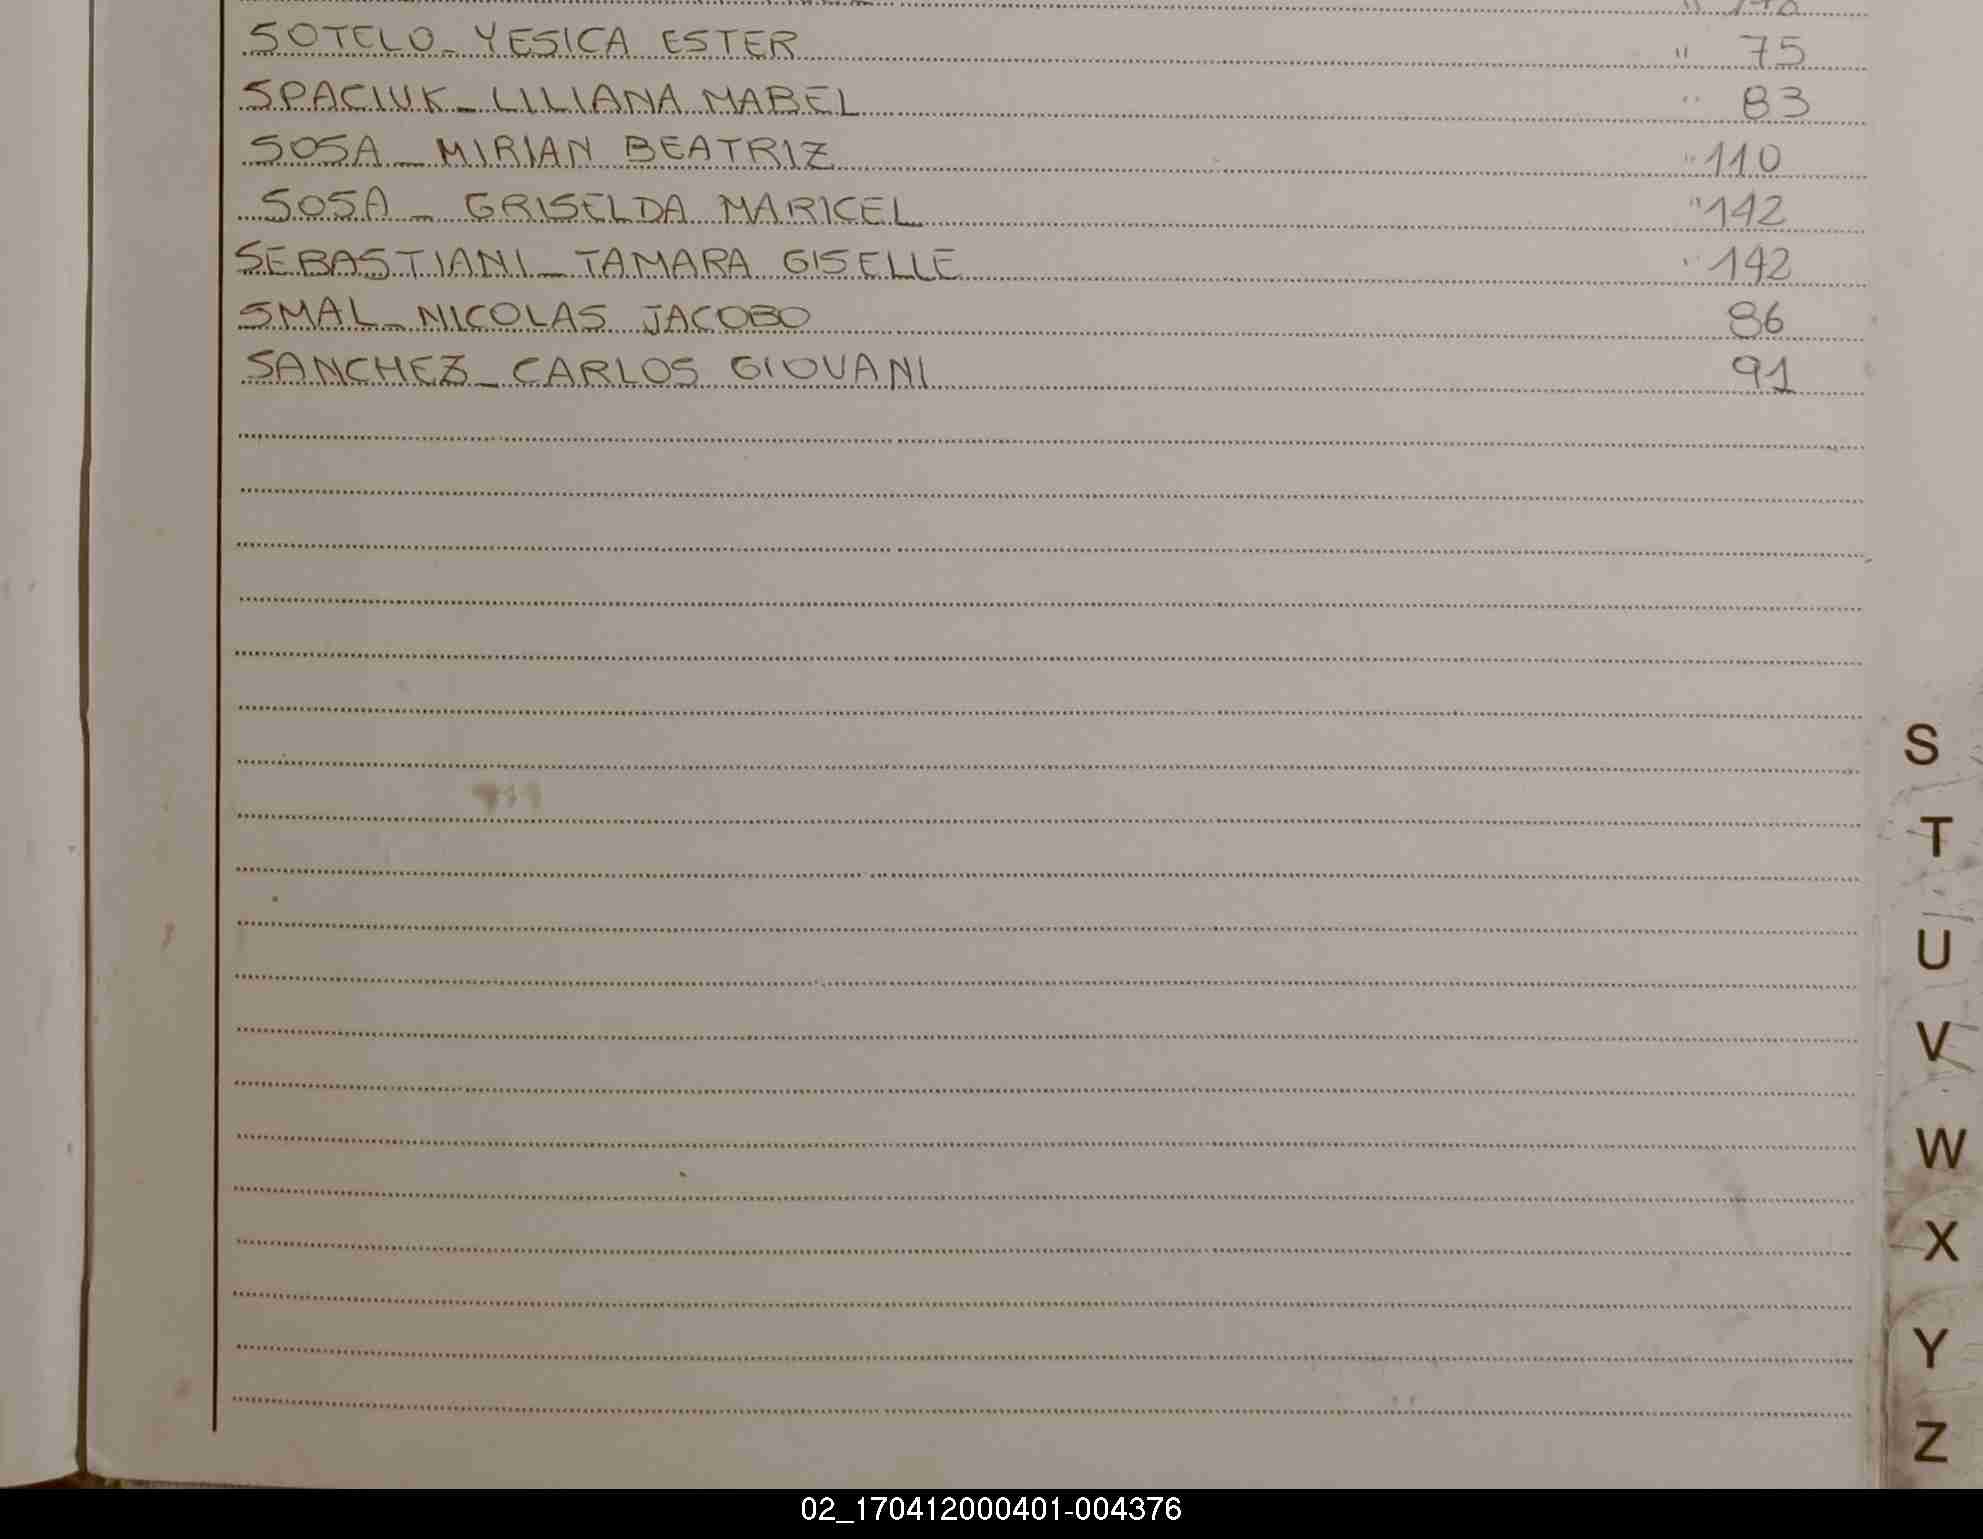 SOTELO_YESICA ESTER " 75
SPACIUK_LILIANA MABEL " 83
SOSA_MIRIAN BEATRIZ " 110
SOSA_GRISELDA MARICEL " 142
SEBASTIANI_TAMARA GISELLE " 142
SMAL_NICOLAS JACOBO 86
SANCHEZ_CARLOS GIOVANI 91
S
T
U
V
W
X
Y
Z
02_170412000401-004376